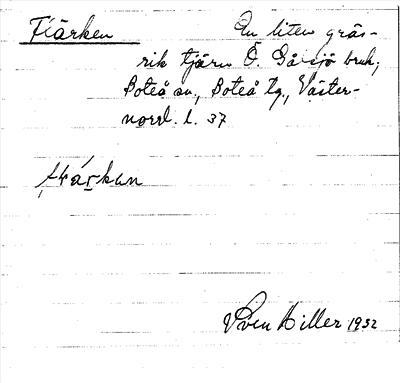 Fiärken En liten gräs-
rik tjärn Ö. Gålsjö bruk,
Boteå sn, Boteå tg., Väster-
norrl. l. 37
Sven Hiller 1932